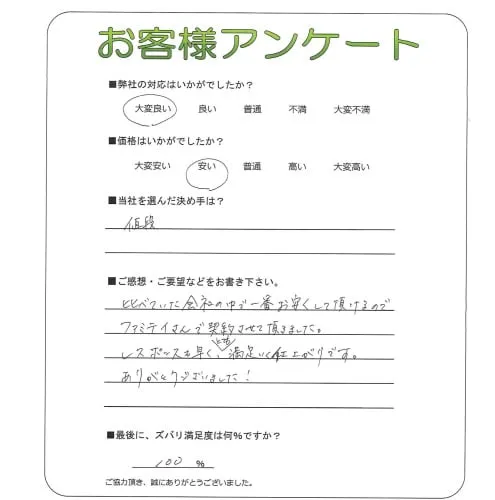 お客様アンケート
■弊社の対応はいかがでしたか？
大変良い 良い 普通 不満 大変不満
■価格はいかがでしたか？
大変安い 安い 普通 高い 大変高い
■当社を選んだ決め手は？
値段
■ご感想・ご要望などをお書き下さい。
比べていた会社の中で一番お安くして頂けるので
ファミテイさんで契約させて頂きました。
レスポンスも早く、満足いく仕上がりです。
ありがとうございました！
■最後に、ズバリ満足度は何%ですか？
100 %
ご協力頂き、誠にありがとうございました。